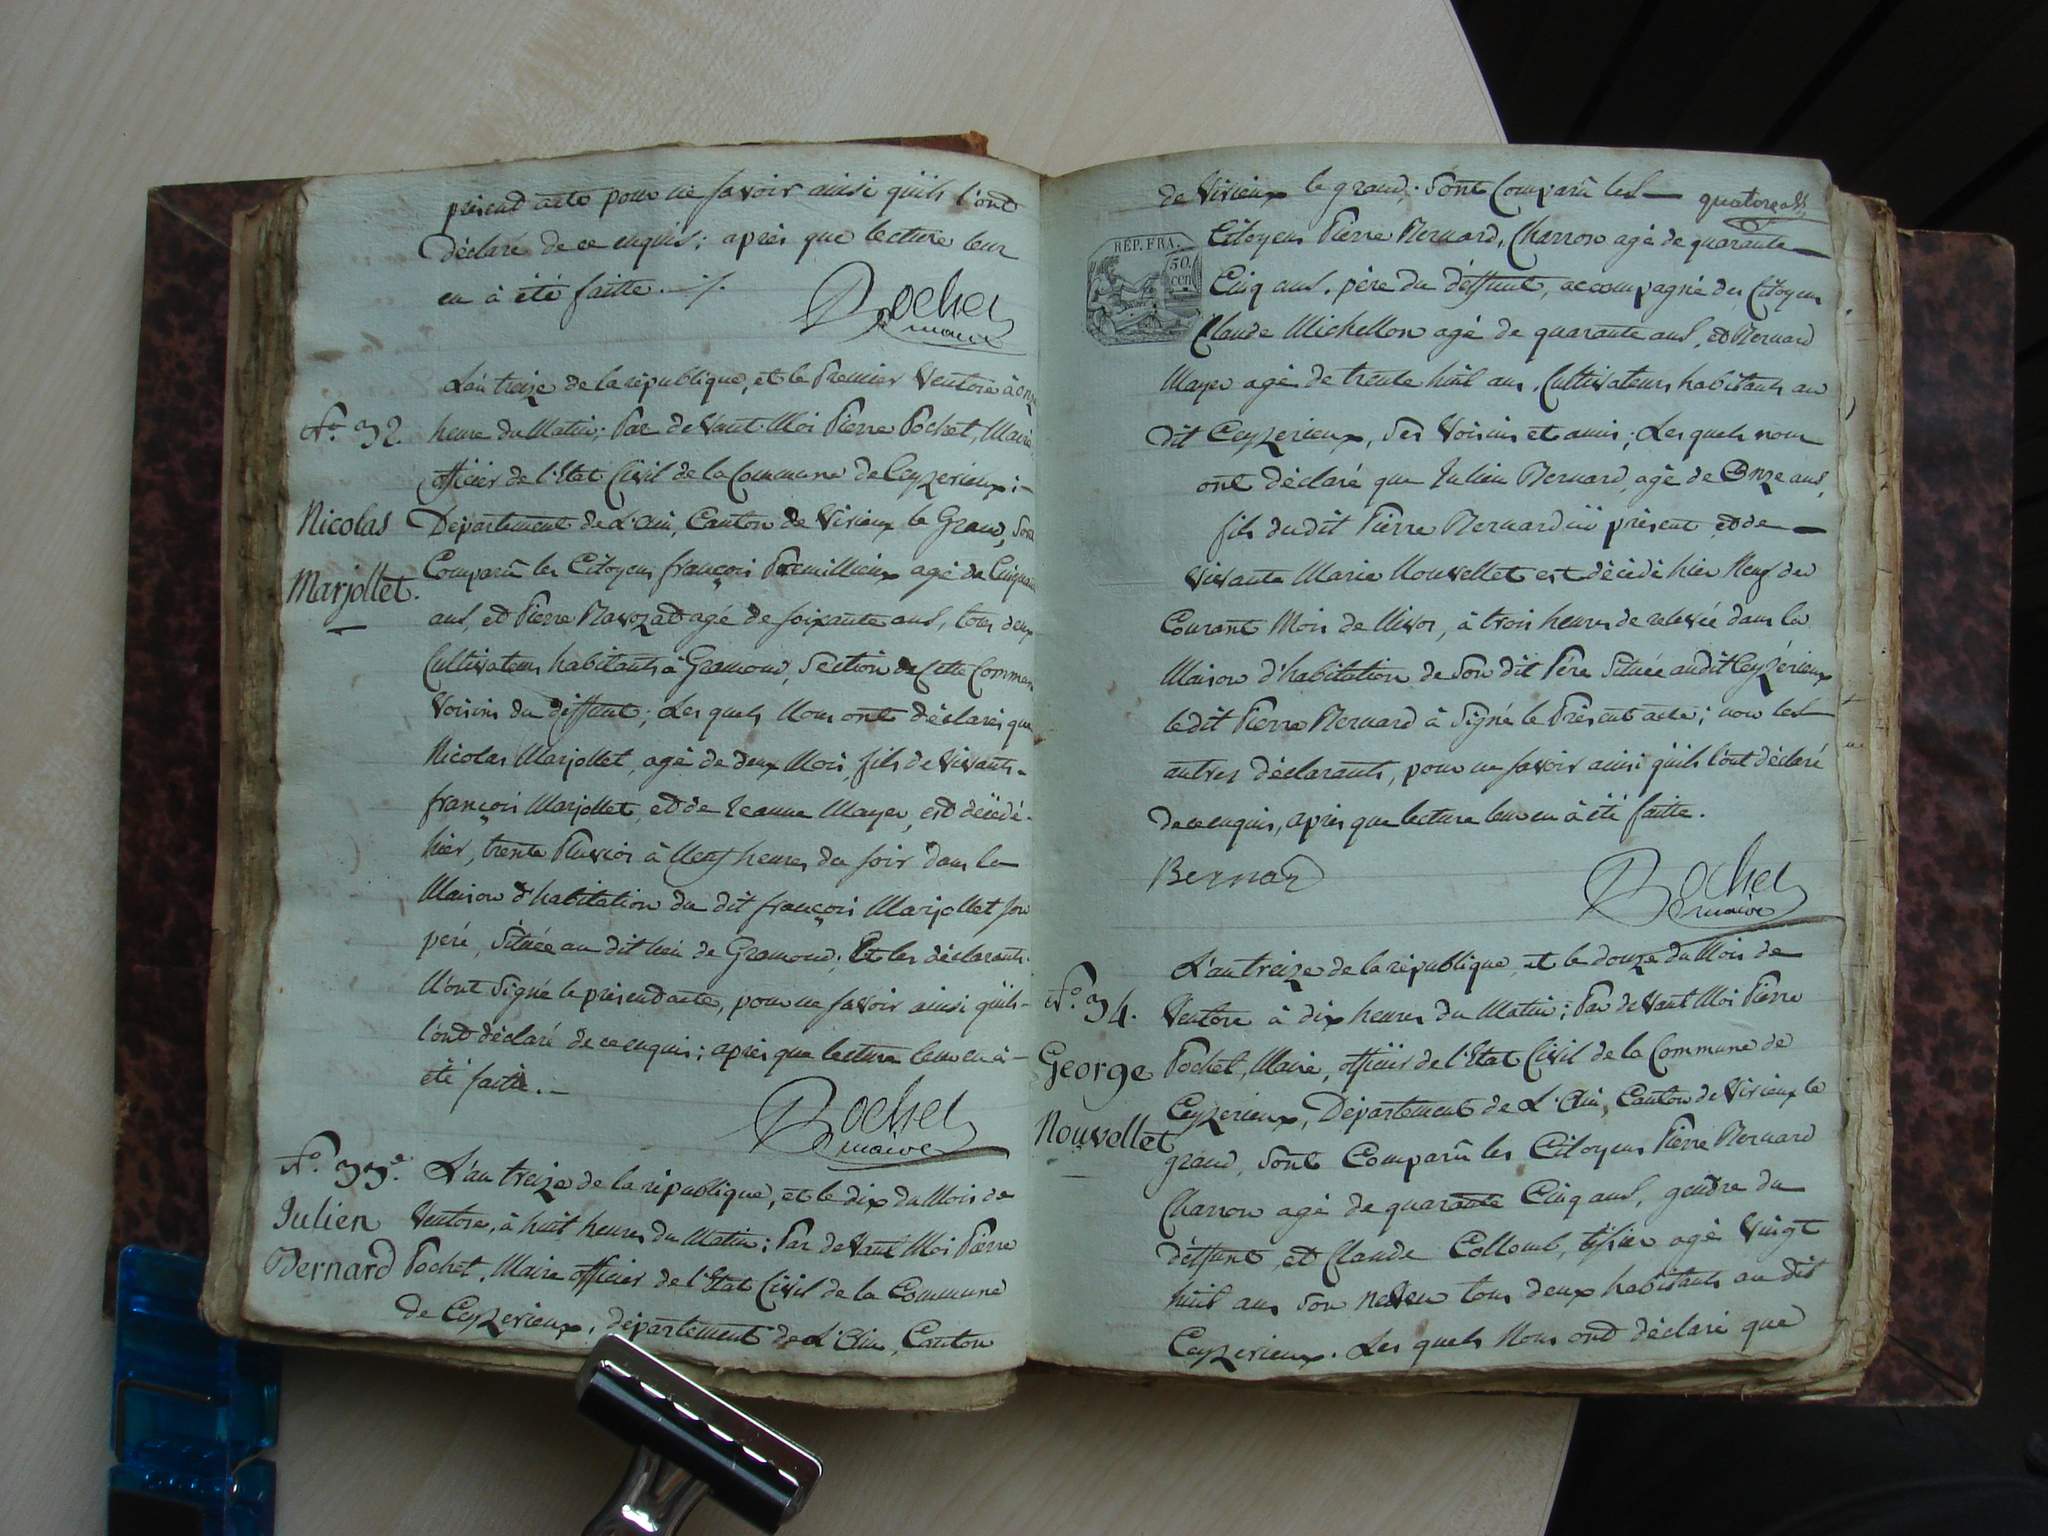 présend acte pour ne savoir ainsi qu'ils l'ont
déclaré de ce enquis; après que lecture leur
en à été faitte ./.
Pochet
maire
L'an treize de la république, et le Premier Ventose à onze
N.° 32. heure du Matin; Par de Vant Moi Pierre Pochet, Maire
officier de l'Etat Civil de la Commune de Ceyzerieux;
Nicolas Département de L'Ain, Canton de Virieux le Grand, sont
Marjollet. Comparû les Citoyens françois Premillieux agé de Cinquante
ans, et Pierre Ravozat agé de soixante ans, tous deux
Cultivateurs habitants à Gramond, Section de Cette Commune
Voisins du deffunt; Les quels Nous ont déclarés que
Nicolas Marjollet, agé de deux Mois, fils de Vivants
françois Marjollet, et de Jeanne Mayer, est décédé
hier, trente Pluvios à Neuf heures du soir dans la
Maison d'habitation du dit françois Marjollet son
peré, Située au dit lieu de Gramond; Et les déclarants
N'ont signé le présend acte, pour ne savoir ainsi qu'ils
l'ont déclaré de ce enquis; après que lecture leur en à
été faitte.
Pochet
maire
N.° 33.e L'an treize de la république, et le dix du Mois de
Julien Ventose, à huit heures du Matin; Par de Vant Moi Pierre
Bernard Pochet, Maire officier de l'Etat Civil de la Commune
de Ceyzerieux, département de L'Ain, Canton
quatorze
de Virieux le grand; Sont Comparû les
REP. FRA.
50.
cen
Citoyens Pierre Bernard, Charron agé de quarante
Cinq ans, père du deffunt, accompagné des Citoyens
Claude Michellon agé de quarante ans, et Bernard
Mayer agé de trente huit ans, Cultivateurs habitants au
dit Ceyzerieux, Ses Voisins et amis; Les quels nous
ont déclaré que Julien Bernard, agé de Onze ans,
fils du dit Pierre Bernard iü présent et de
Vivante Marie Nouvellet est décédé hier Neuf du
Courant Mois de Nivos, à trois heures de relevée dans la
Maison d'habitation de Son dit Père Située audit Ceyzérieux
le dit Pierre Bernard à Signé le Présent acte; non les
autres déclarants, pour ne savoir ainsi qu'ils l'ont déclaré
de ce enquis, après que lecture leur en à été faitte.
Bernard
Pochet
maire
L'an treize de la république, et le douze du Mois de
N.° 34. Ventose à dix heures du Matin; Par de Vant Moi Pierre
George Pochet, Maire, officier de l'Etat Civil de la Commune de
Ceyzerieux, Département de L'Ain, Canton de Virieux le
Nouvellet grand, Sont Comparû les Citoyens Pierre Bernard
Charron agé de quarante Cinq ans, gendre du
deffunt et Claude Collomb, tissier agé Vingt
huit ans Son Neveu tous deux habitants au dit
Ceyzerieux. Les quels Nous ont déclaré que